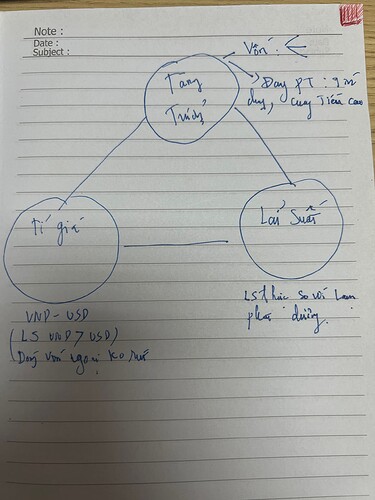 Note :
Date :
Subject :
Vốn :
Tăng
Trưởng
Đang PT :
dụng, cung tiền cao
Tỉ giá
Lãi Suất
VND - USD
(LS VND > USD)
Dòng vốn ngoại ko rút
LS thực so với Lạm
phát dương.